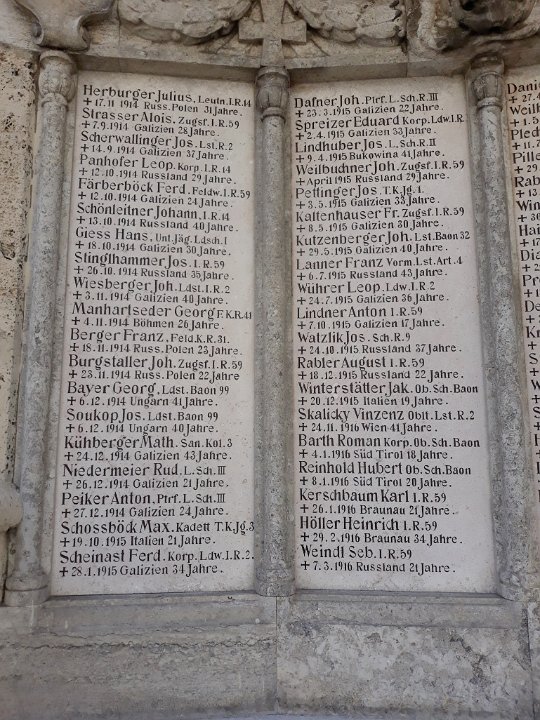 Herburger Julius, Leutn.I.R.14
+ 17.11.1914 Russ.Polen 31 Jahre.
Strasser Alois. Zugsf.I.R.59
+ 7.9.1914 Galizien 28 Jahre.
Scherwallinger Jos. Lst.R.2
+ 14.9.1914 Galizien 37 Jahre.
Panhofer Leop. Korp.I.R.14
+ 12.10.1914 Russland 29 Jahre.
Färberböck Ferd. Feldw.I.R.59
+ 12.10.1914 Galizien 24 Jahre.
Schönleitner Johann, I.R.14
+ 13.10.1914 Russland 40 Jahre.
Giess Hans, Unt.Jäg.Ldsch.I
+ 18.10.1914 Galizien 30 Jahre.
Stinglhammer Jos. I.R.59
+ 26.10.1914 Russland 35 Jahre.
Wiesberger Joh. Ldst.I.R.2
+ 3.11.1914 Galizien 40 Jahre.
Manhartseder Georg F.K.R.41
+ 4.11.1914 Böhmen 26 Jahre.
Berger Franz, Feld.K.R.31.
+ 18.11.1914 Russ.Polen 23 Jahre.
Burgstaller Joh. Zugsf.I.R.59
+ 23.11.1914 Russ.Polen 22 Jahre
Bayer Georg, Ldst.Baon 99
+ 6.12.1914 Ungarn 41 Jahre.
Soukop Jos. Ldst.Baon 99
+ 6.12.1914 Ungarn 40 Jahre.
Kühberger Math. San.Kol.3
+ 24.12.1914 Galizien 43 Jahre.
Niedermeier Rud. L.Sch.III
+ 26.12.1914 Galizien 21 Jahre.
Peiker Anton. Ptrf.L.Sch.III
+ 27.12.1914 Galizien 24 Jahre.
Schossböck Max. Kadett T.K.Jg.3
+ 19.10.1915 Italien 21 Jahre.
Scheinast Ferd. Korp.Ldw.I.R.2.
+ 28.1.1915 Galizien 34 Jahre.
Dafner Joh. Ptrf.L.Sch.R.III
+ 23.3.1915 Karpathen 22 Jahre.
Spreizer Eduard Korp.Ldw.I.R.
+ 2.4.1915 Galizien 33 Jahre.
Lindhuber Jos. L.Sch.R.II
+ 9.4.1915 Bukowina 41 Jahre.
Weilbuchner Joh. Zugsf.I.R.59
+ April 1915 Russland 29 Jahre.
Pettinger Jos. T.K.Jg.1.
+ 3.5.1915 Galizien 33 Jahre.
Kaltenhauser Fr. Zugsf.I.R.59
+ 8.5.1915 Galizien 30 Jahre.
Kutzenberger Joh. Lst.Baon 32
+ 29.5.1915 Galizien 40 Jahre.
Lanner Franz Vorm.Lst.Art.4
+ 6.7.1915 Russland 43 Jahre.
Wührer Leop. Ldw.I.R.2
+ 24.7.1915 Galizien 36 Jahre.
Lindner Anton I.R.59
+ 7.10.1915 Galizien 17 Jahre.
Watzlik Jos. Sch.R.9
+ 24.10.1915 Russland 37 Jahre.
Rabler August I.R.59
+ 18.12.1915 Russland 22 Jahre.
Winterstätter Jak. Ob.Sch.Baon
+ 20.12.1915 Italien 19 Jahre.
Skalicky Vinzenz Oblt.Lst.R.2
+ 24.11.1916 Wien 41 Jahre.
Barth Roman Korp.Ob.Sch.Baon
+ 4.1.1916 Süd Tirol 18 Jahre.
Reinhold Hubert Ob.Sch.Baon
+ 8.1.1916 Süd Tirol 20 Jahre.
Kerschbaum Karl I.R.59
+ 26.1.1916 Braunau 21 Jahre.
Höller Heinrich I.R.59
+ 29.2.1916 Braunau 34 Jahre.
Weindl Seb. I.R.59
+ 7.3.1916 Russland 21 Jahre.